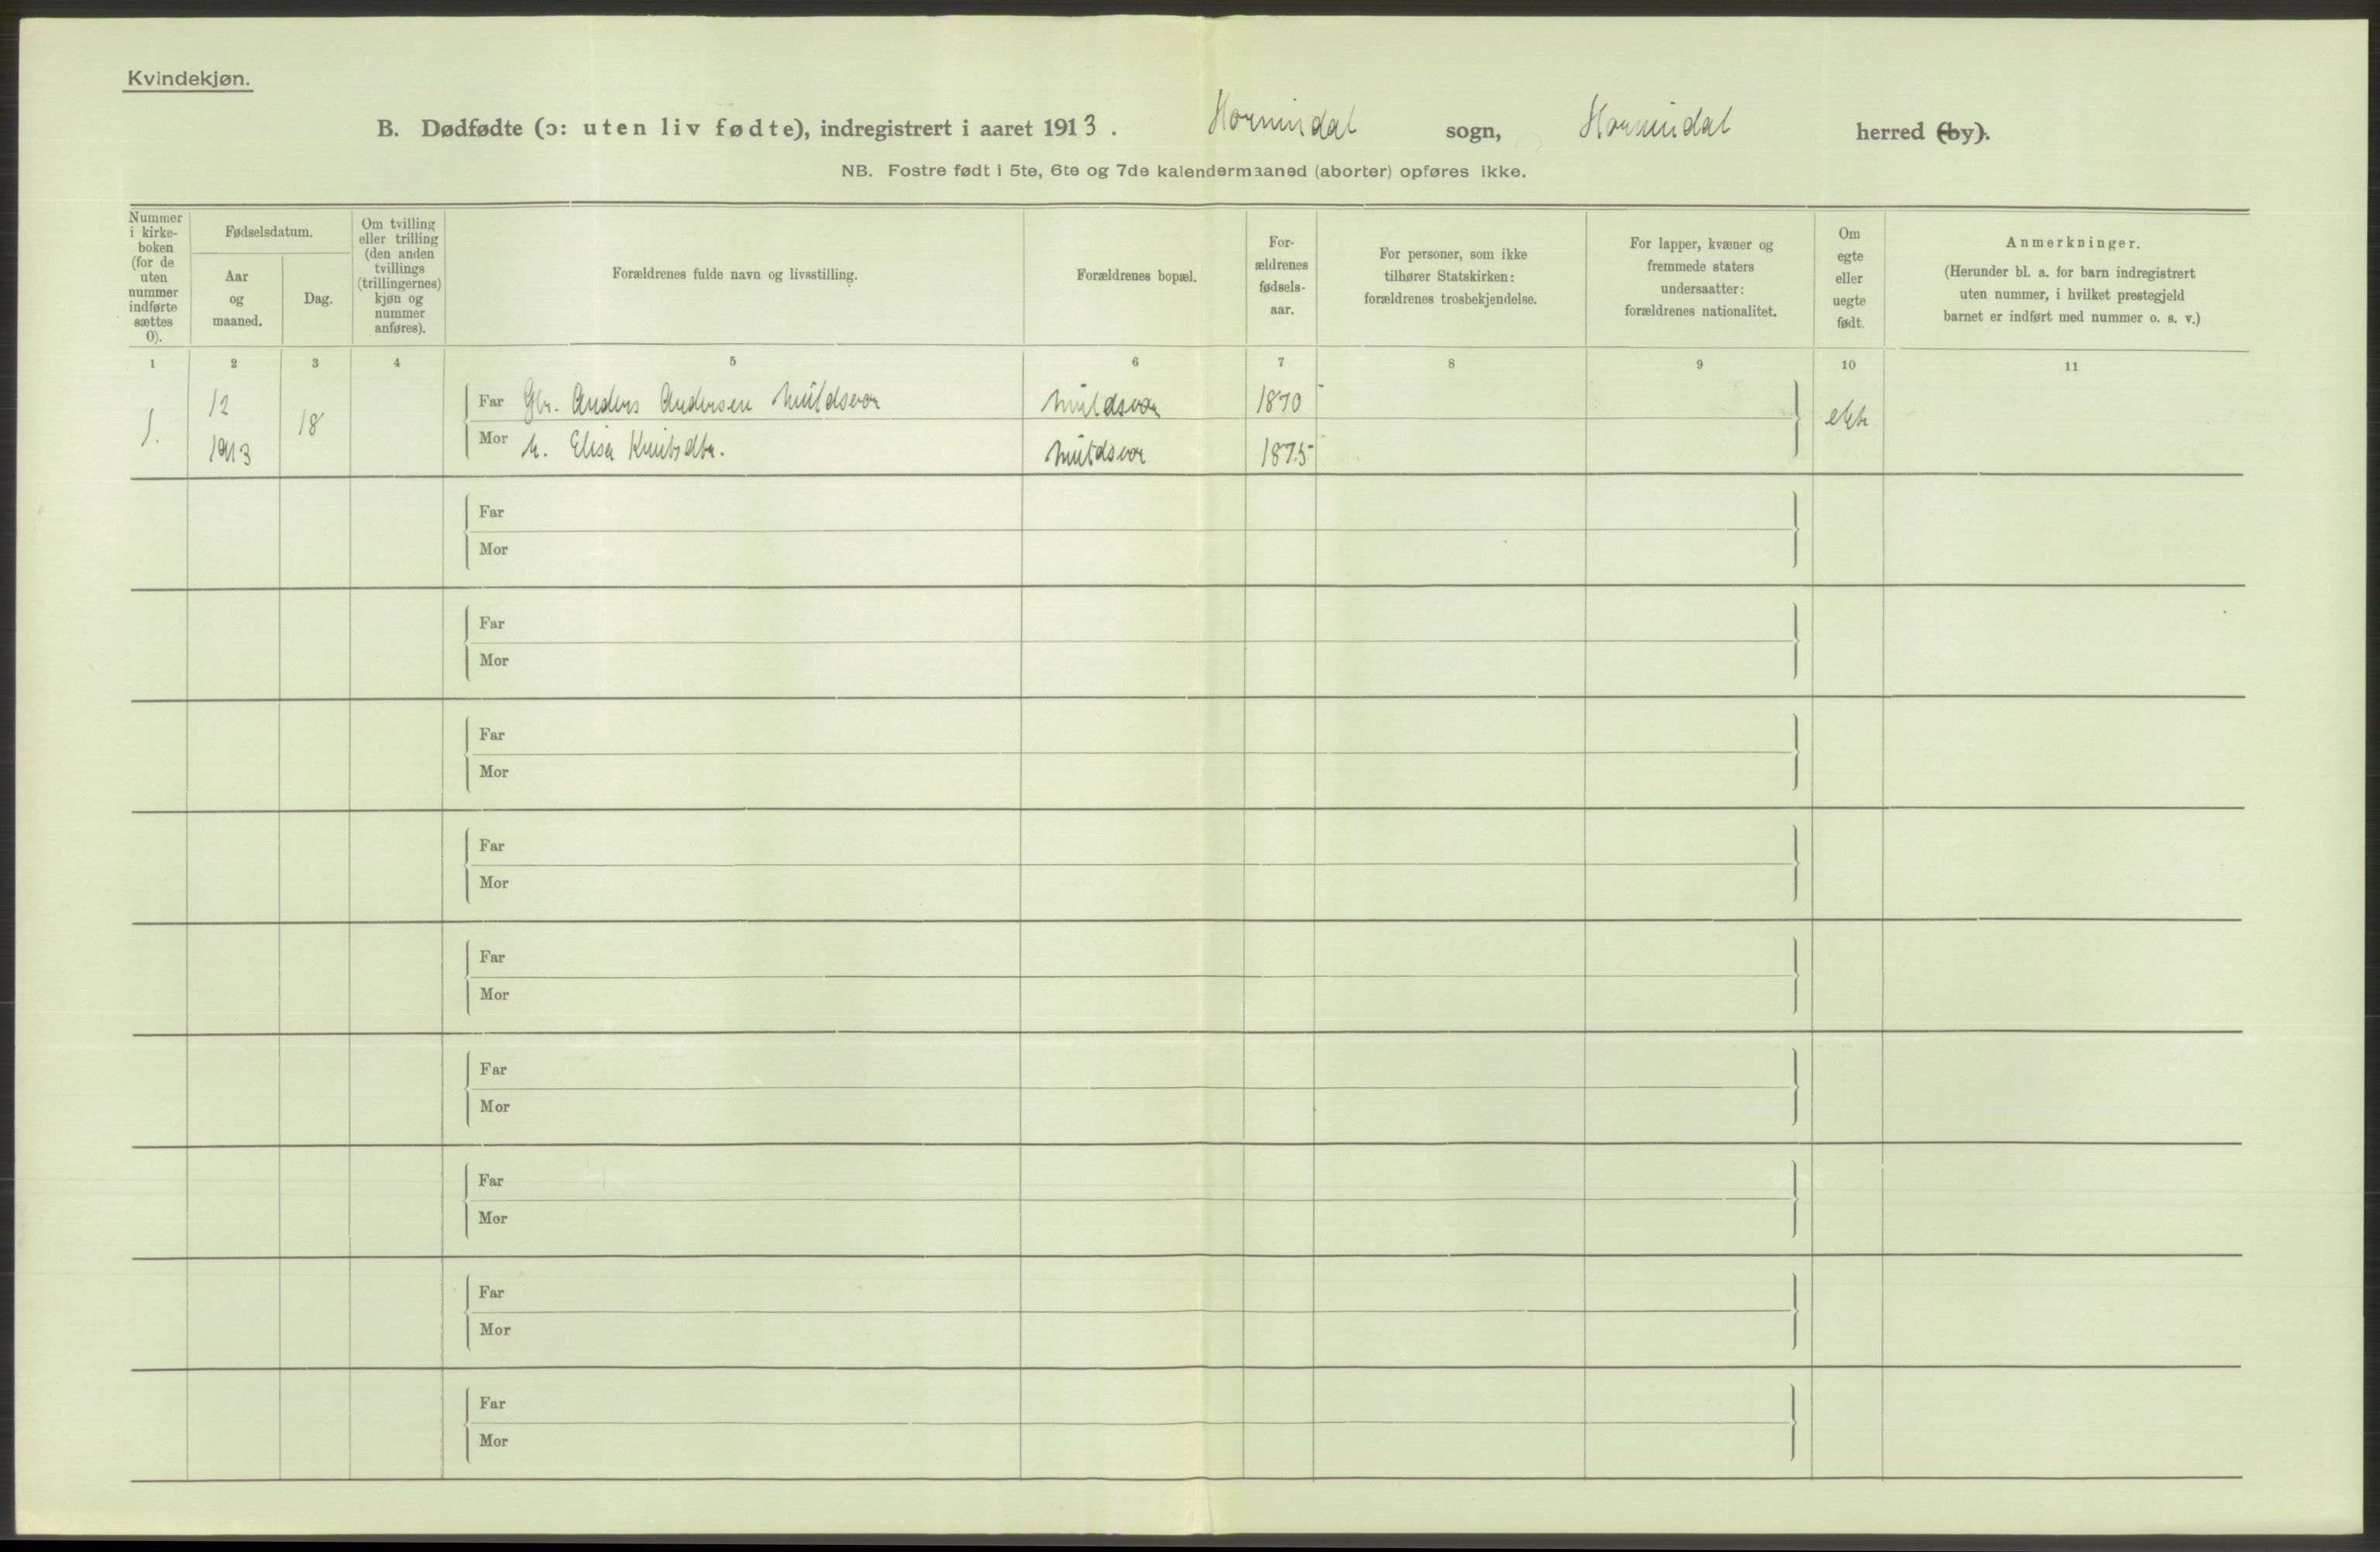 Kvindekjøn.
B. Dødfødte (ɔ: uten liv fødte), indregistrert i aaret 1913. Hornindal sogn, Hornindal herred (by).
NB. Fostre født i 5te, 6te og 7de kalendermaaned (aborter) opføres ikke.
Nummer
i kirke-
boken
(for de
uten
nummer
indførte
sættes
0).
Fødselsdatum.
Aar
og
maaned.
Dag.
Om tvilling
eller trilling
(den anden
tvillings
(trillingernes)
kjøn og
nummer
anføres).
Forældrenes fulde navn og livsstilling.
Forældrenes bopæl.
For-
ældrenes
fødsels-
aar.
For personer, som ikke
tilhører Statskirken:
forældrenes trosbekjendelse.
For lapper, kvæner og
fremmede staters
undersaatter:
forældrenes nationalitet.
Om
egte
eller
uegte
født.
Anmerkninger.
(Herunder bl. a. for barn indregistrert
uten nummer, i hvilket prestegjeld
barnet er indført med nummer o. s. v.)
1 2 3 4 5 6 7 8 9 10 11
1. 12 1913 18
Far Gbr. Anders Andersen Muldsvor Muldsvor 1870
Mor h. Elisa Knutsdtr. Muldsvor 1875
egte
Far
Mor
Far
Mor
Far
Mor
Far
Mor
Far
Mor
Far
Mor
Far
Mor
Far
Mor
Far
Mor